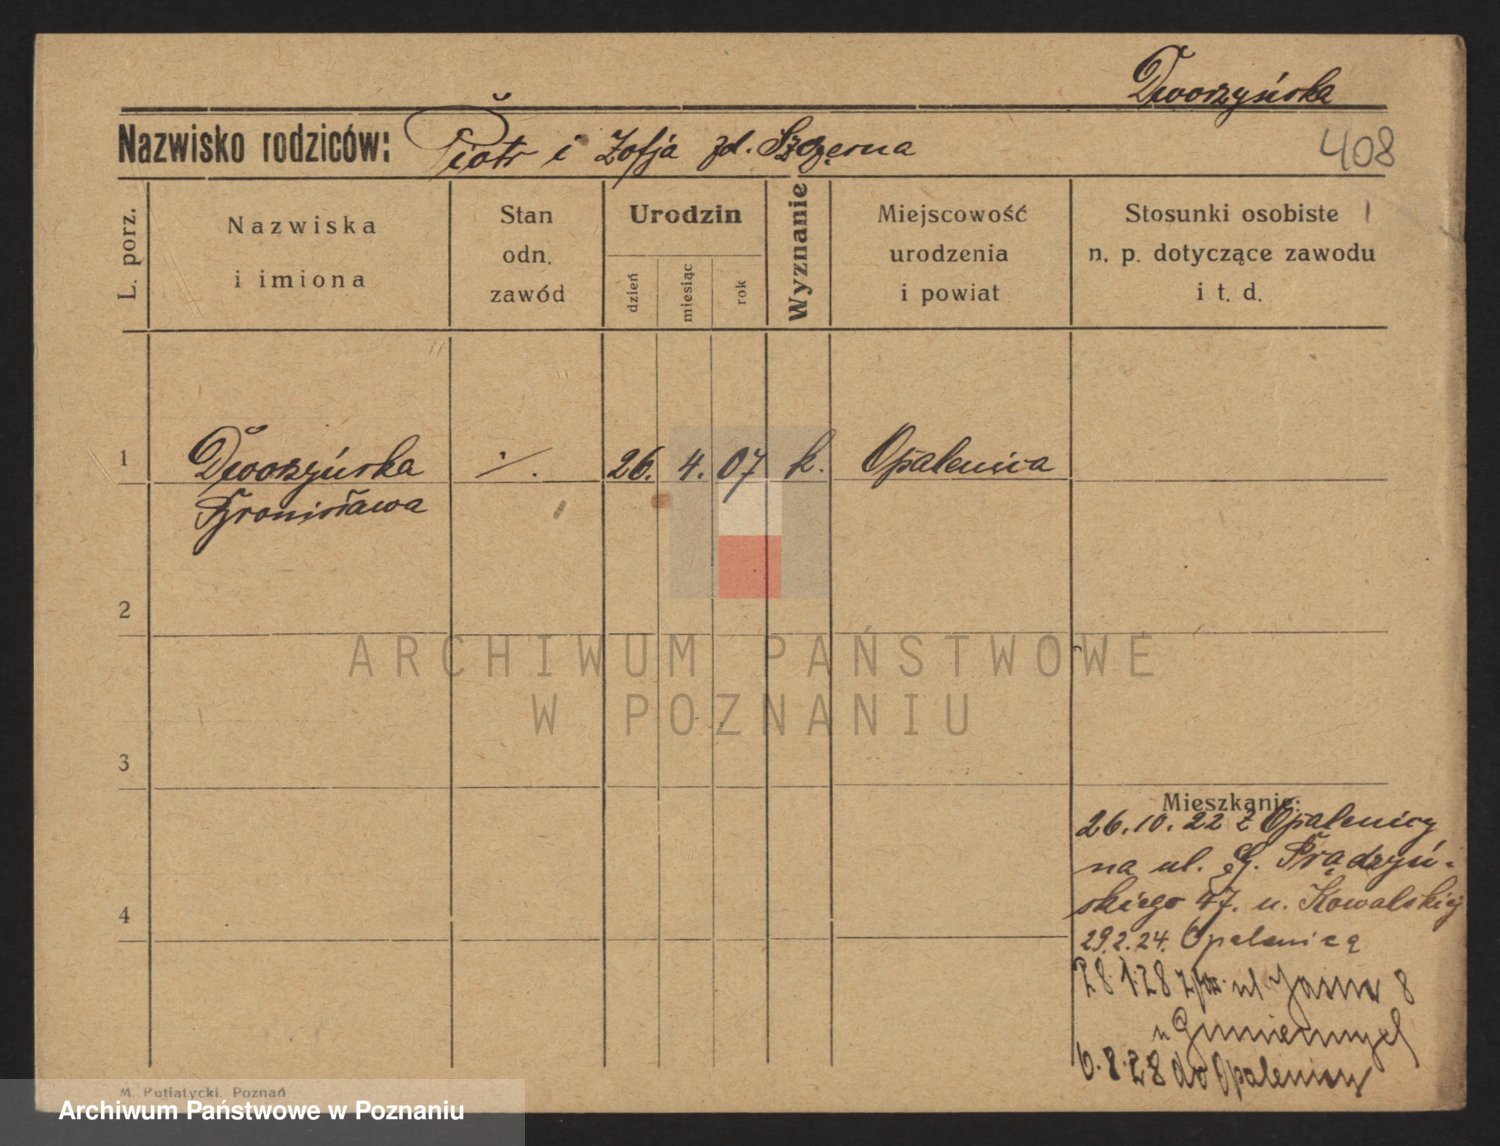 Dworzyńska
Nazwisko rodziców: Piotr i Zofja zd. Szczerna
408
L. porz.
Nazwiska
i imiona
Stan
odn.
zawód
Urodzin
dzień
miesiąc
rok
Wyznanie
Miejscowość
urodzenia
i powiat
Stosunki osobiste
n. p. dotyczące zawodu
i t. d.
1 Dworzyńska ·/. 26. 4. 07 k. Opalenica
Bronisława
2
3
4
ARCHIWUM PAŃSTWOWE
W POZNANIU
Mieszkanie:
26.10.22 z Opalenicy
na ul. G. Prądzyń-
skiego 47. u. Kowalskiej
29.2.24. Opalenicą
28.1.28 ul Jasna 8
u
6.8.28 do Opalenicy
M. Putiatycki, Poznań
Archiwum Państwowe w Poznaniu